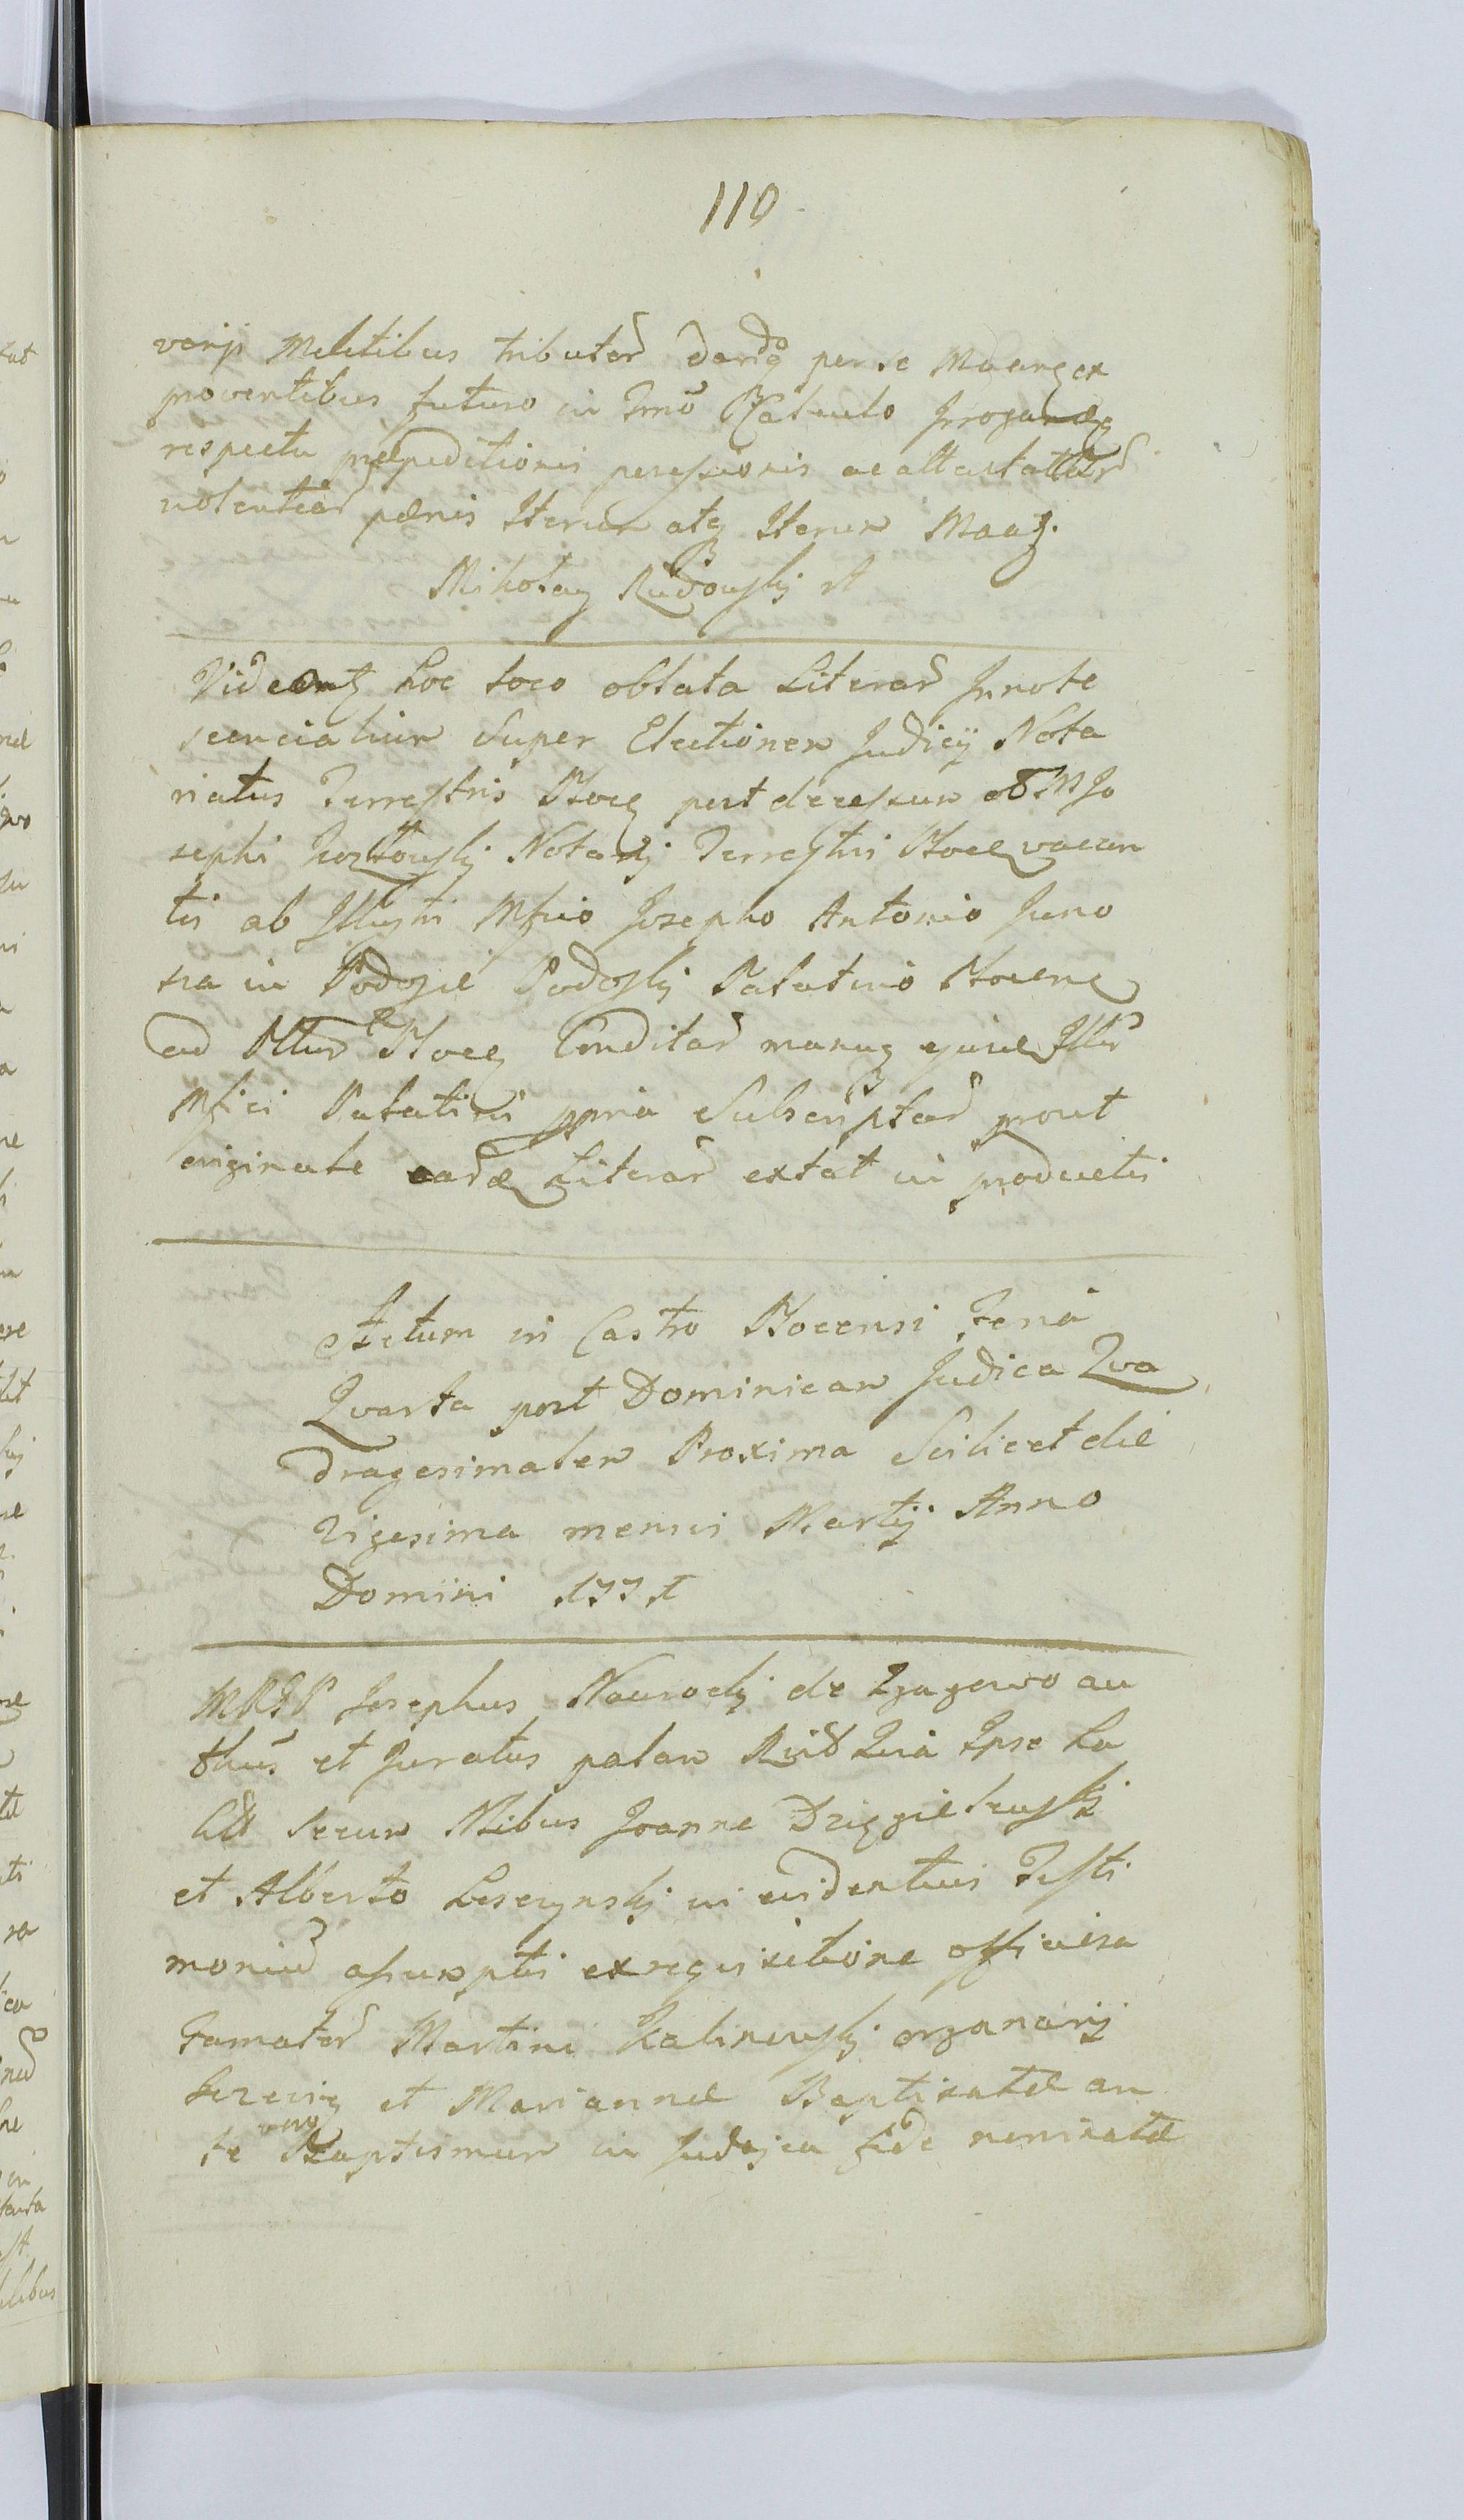 110
varijs Militibus tributar dandg per se Maeng ex
proventibus futuro in Tmō Calculo Irrogandg
respectu præpeditionis peressionis ac attestatter
violentiar pænis Iterum atg Iterum Maaz.
Mikołay Rudowski
Videantg hoc loco oblata Literar Innote
scencialium Super Electionem Judicij Nota
riatus Terrestris Płoceg post decessum M Jo
sephi Kozłowskj Notarij Terrestris Płoceg vacan
tis ab Illustri Mfico Josepho Antonio Juno
sza in Podosie Podoskj Palatino Płocens
ad Płoceg Conditar manug ejusdē Illis
Mfici Palatini ppria Subscriptar prout
originale eardē Literar extat in productis
Actum in Castro Płocensi Feria
Qvarta post Dominicam Judica Qva
dragesimalem Proxima Scilicet die
Vigesima mensis Martij Anno
Domini 1771
MRGP Josephus Nawrockj de Zgagowo au
thus et Juratus palam Quia Ipse
secum Nibus Joanne Dzięgielewskj
et Alberto Lesczynskj in evidentius Testi
moniu assumptis ex reqvisitione officiosa
Famator Martini Kalinowskj organarij
et Mariannæ Baptisatæ an
te vero Baptismum in Judajca fide